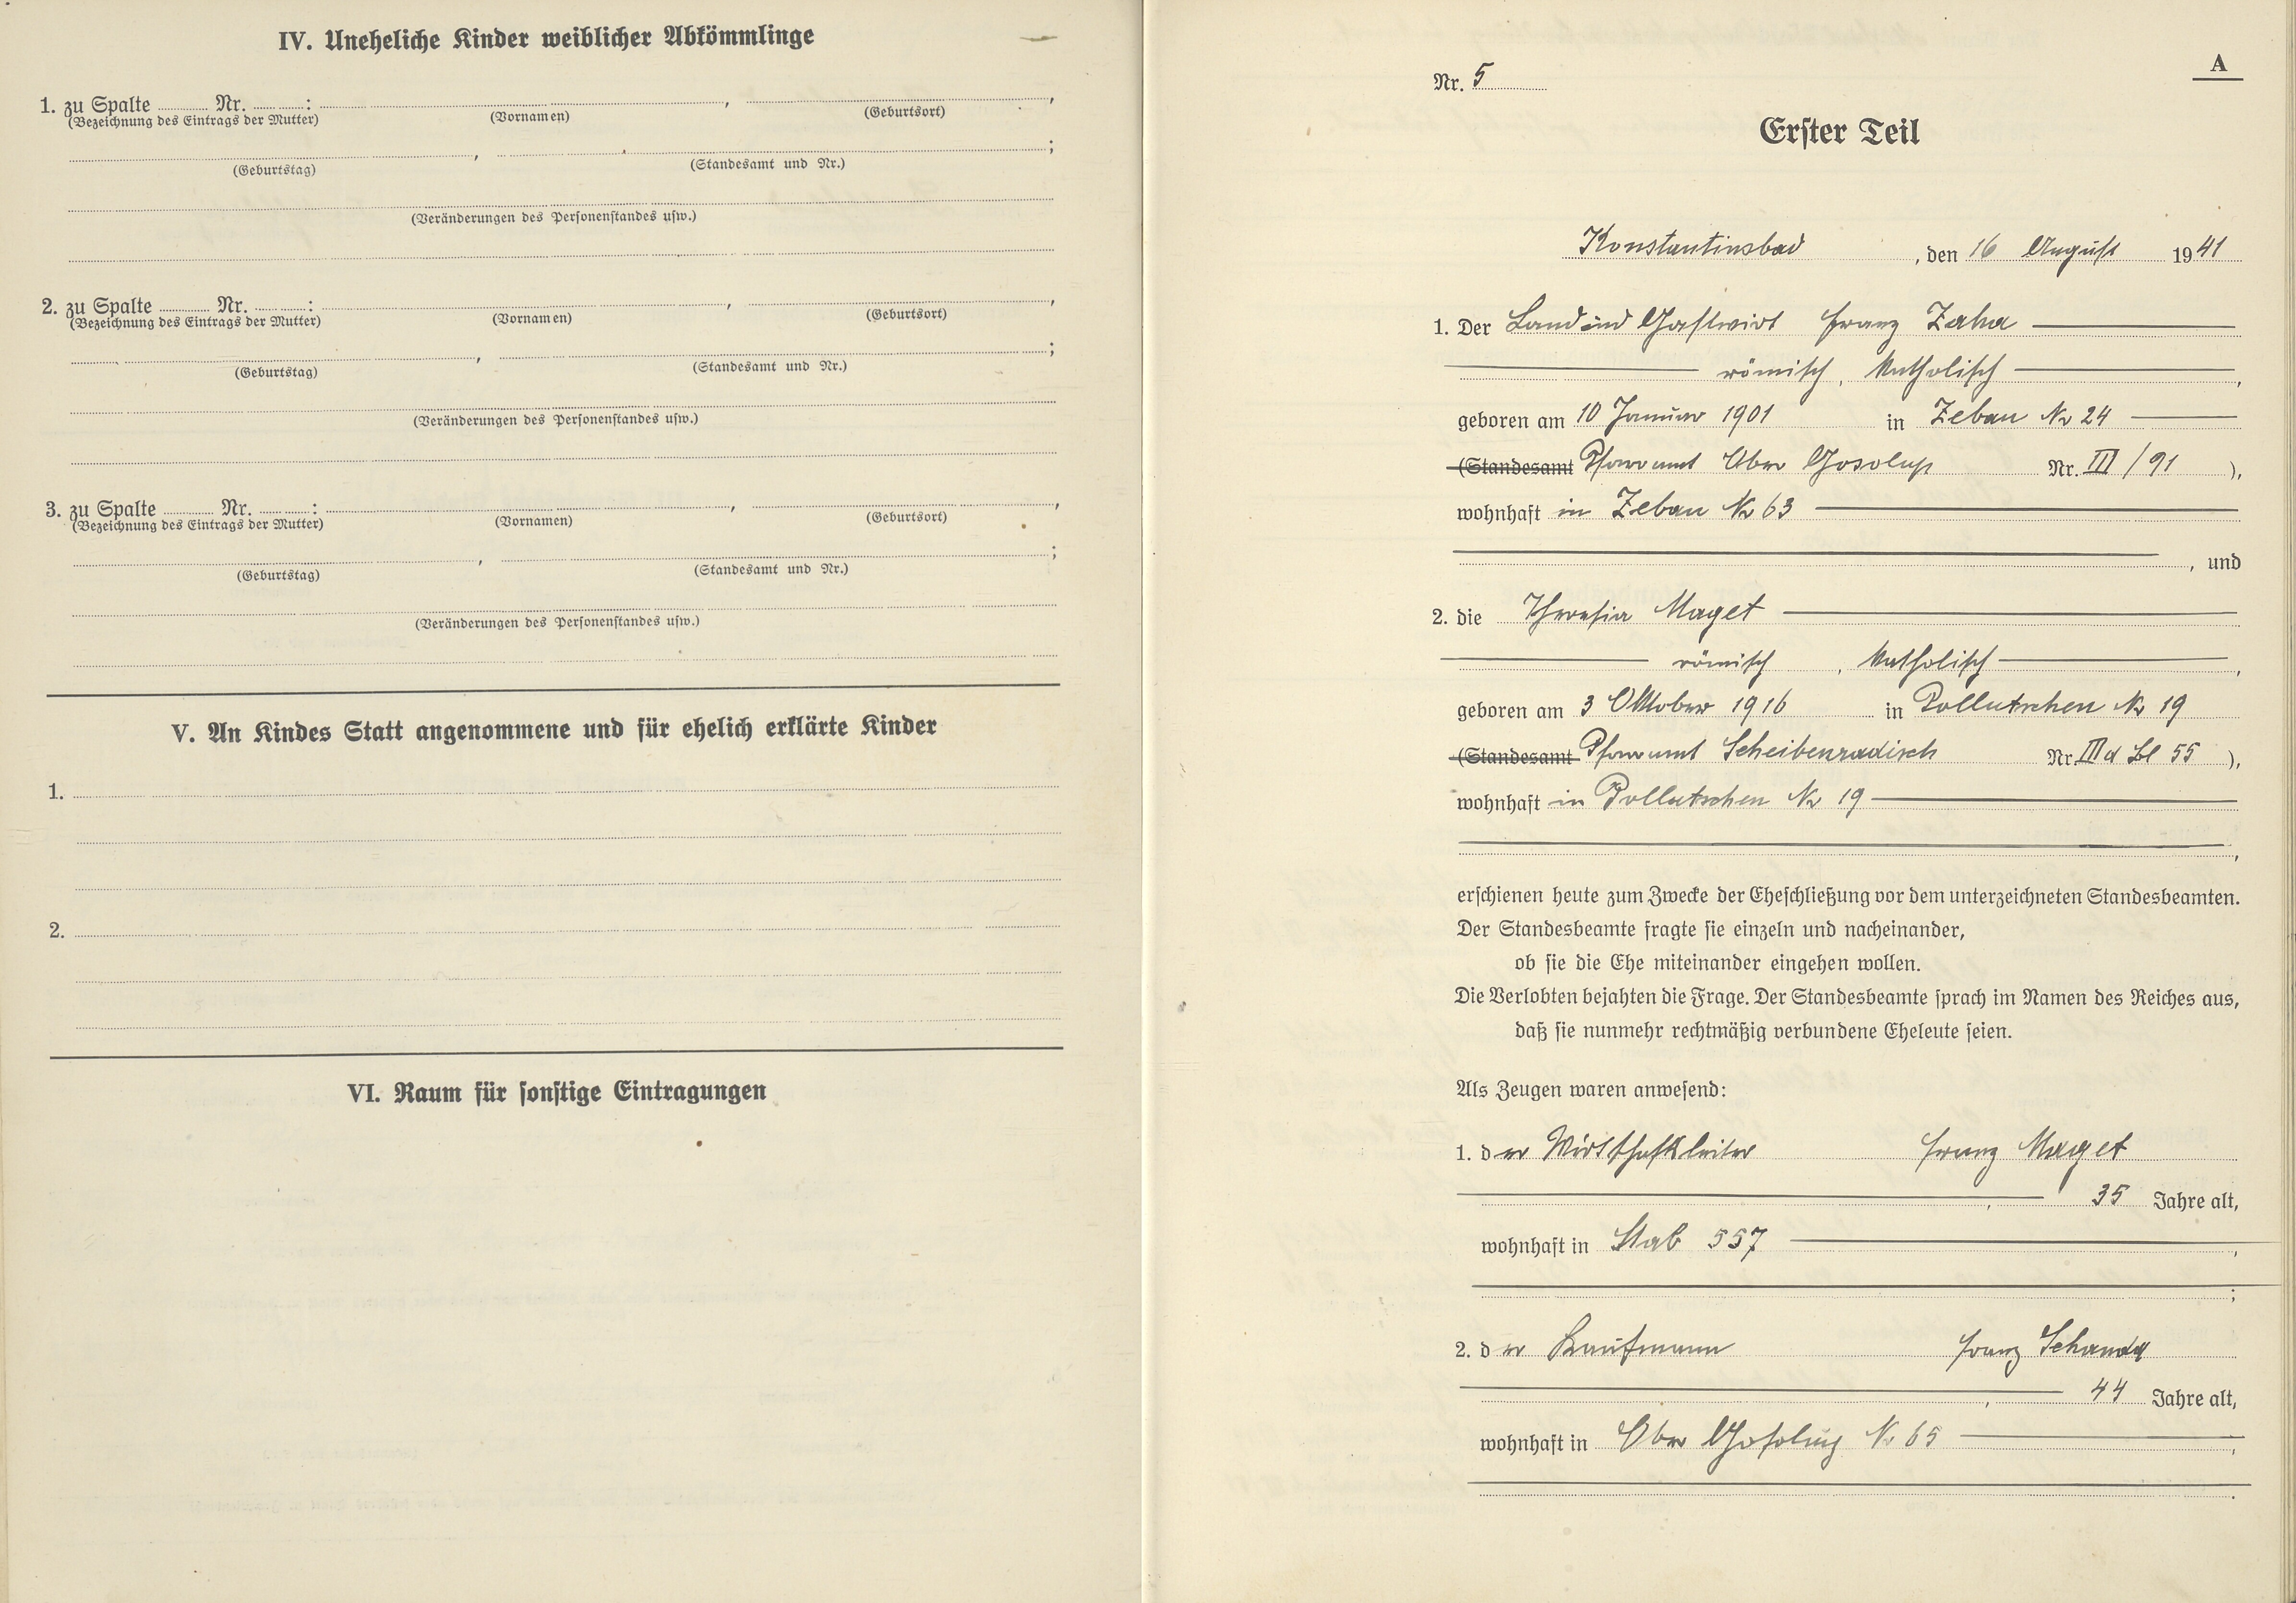 IV. Uneheliche Kinder weiblicher Abkömmlinge
1. zu Spalte ........ Nr. ........ : ........ , ........ ,
(Bezeichnung des Eintrags der Mutter) (Vornamen) (Geburtsort)
........ , ........ ;
(Geburtstag) (Standesamt und Nr.)
(Veränderungen des Personenstandes usw.)
2. zu Spalte ........ Nr. ........ : ........ , ........ ,
(Bezeichnung des Eintrags der Mutter) (Vornamen) (Geburtsort)
........ , ........ ;
(Geburtstag) (Standesamt und Nr.)
(Veränderungen des Personenstandes usw.)
3. zu Spalte ........ Nr. ........ : ........ , ........ ,
(Bezeichnung des Eintrags der Mutter) (Vornamen) (Geburtsort)
........ , ........ ;
(Geburtstag) (Standesamt und Nr.)
(Veränderungen des Personenstandes usw.)
V. An Kindes Statt angenommene und für ehelich erklärte Kinder
1.
2.
VI. Raum für sonstige Eintragungen
A
Nr. 5
Erster Teil
Konstantinsbad , den 16 August 1941
1. Der Land und Gastwirt Franz Zaha
römisch, katholisch ,
geboren am 10 Januar 1901 in Zebau No 24
(Standesamt Pfarramt Ober Gosolup Nr. III / 91 ),
wohnhaft in Zebau No 63
, und
2. die Theresia Maget
römisch , katholisch ,
geboren am 3 Oktober 1916 in Pollutschen No 19
(Standesamt Pfarramt Scheibenradisch Nr. III d Bl 55 ),
wohnhaft in Pollutschen No 19
,
erschienen heute zum Zwecke der Eheschließung vor dem unterzeichneten Standesbeamten.
Der Standesbeamte fragte sie einzeln und nacheinander,
ob sie die Ehe miteinander eingehen wollen.
Die Verlobten bejahten die Frage. Der Standesbeamte sprach im Namen des Reiches aus,
daß sie nunmehr rechtmäßig verbundene Eheleute seien.
Als Zeugen waren anwesend:
1. der Wirtschaftsleiter Franz Maget
, 35 Jahre alt,
wohnhaft in Stab 557 ,
;
2. der Kaufmann Franz Schanda
, 44 Jahre alt,
wohnhaft in Ober Gosolup No 65 ,
.